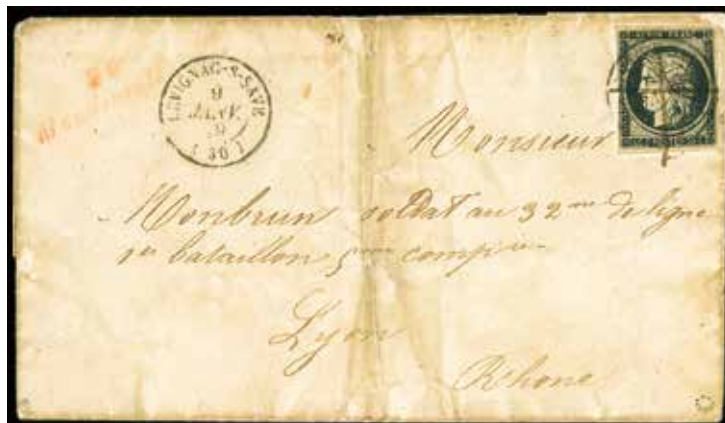 LEVIGNAC-S-SAVE
9
JANV.
(30)
Monsieur
Monbrun soldat au 32me de ligne
1er bataillon 5me compie
Lyon
Rhone